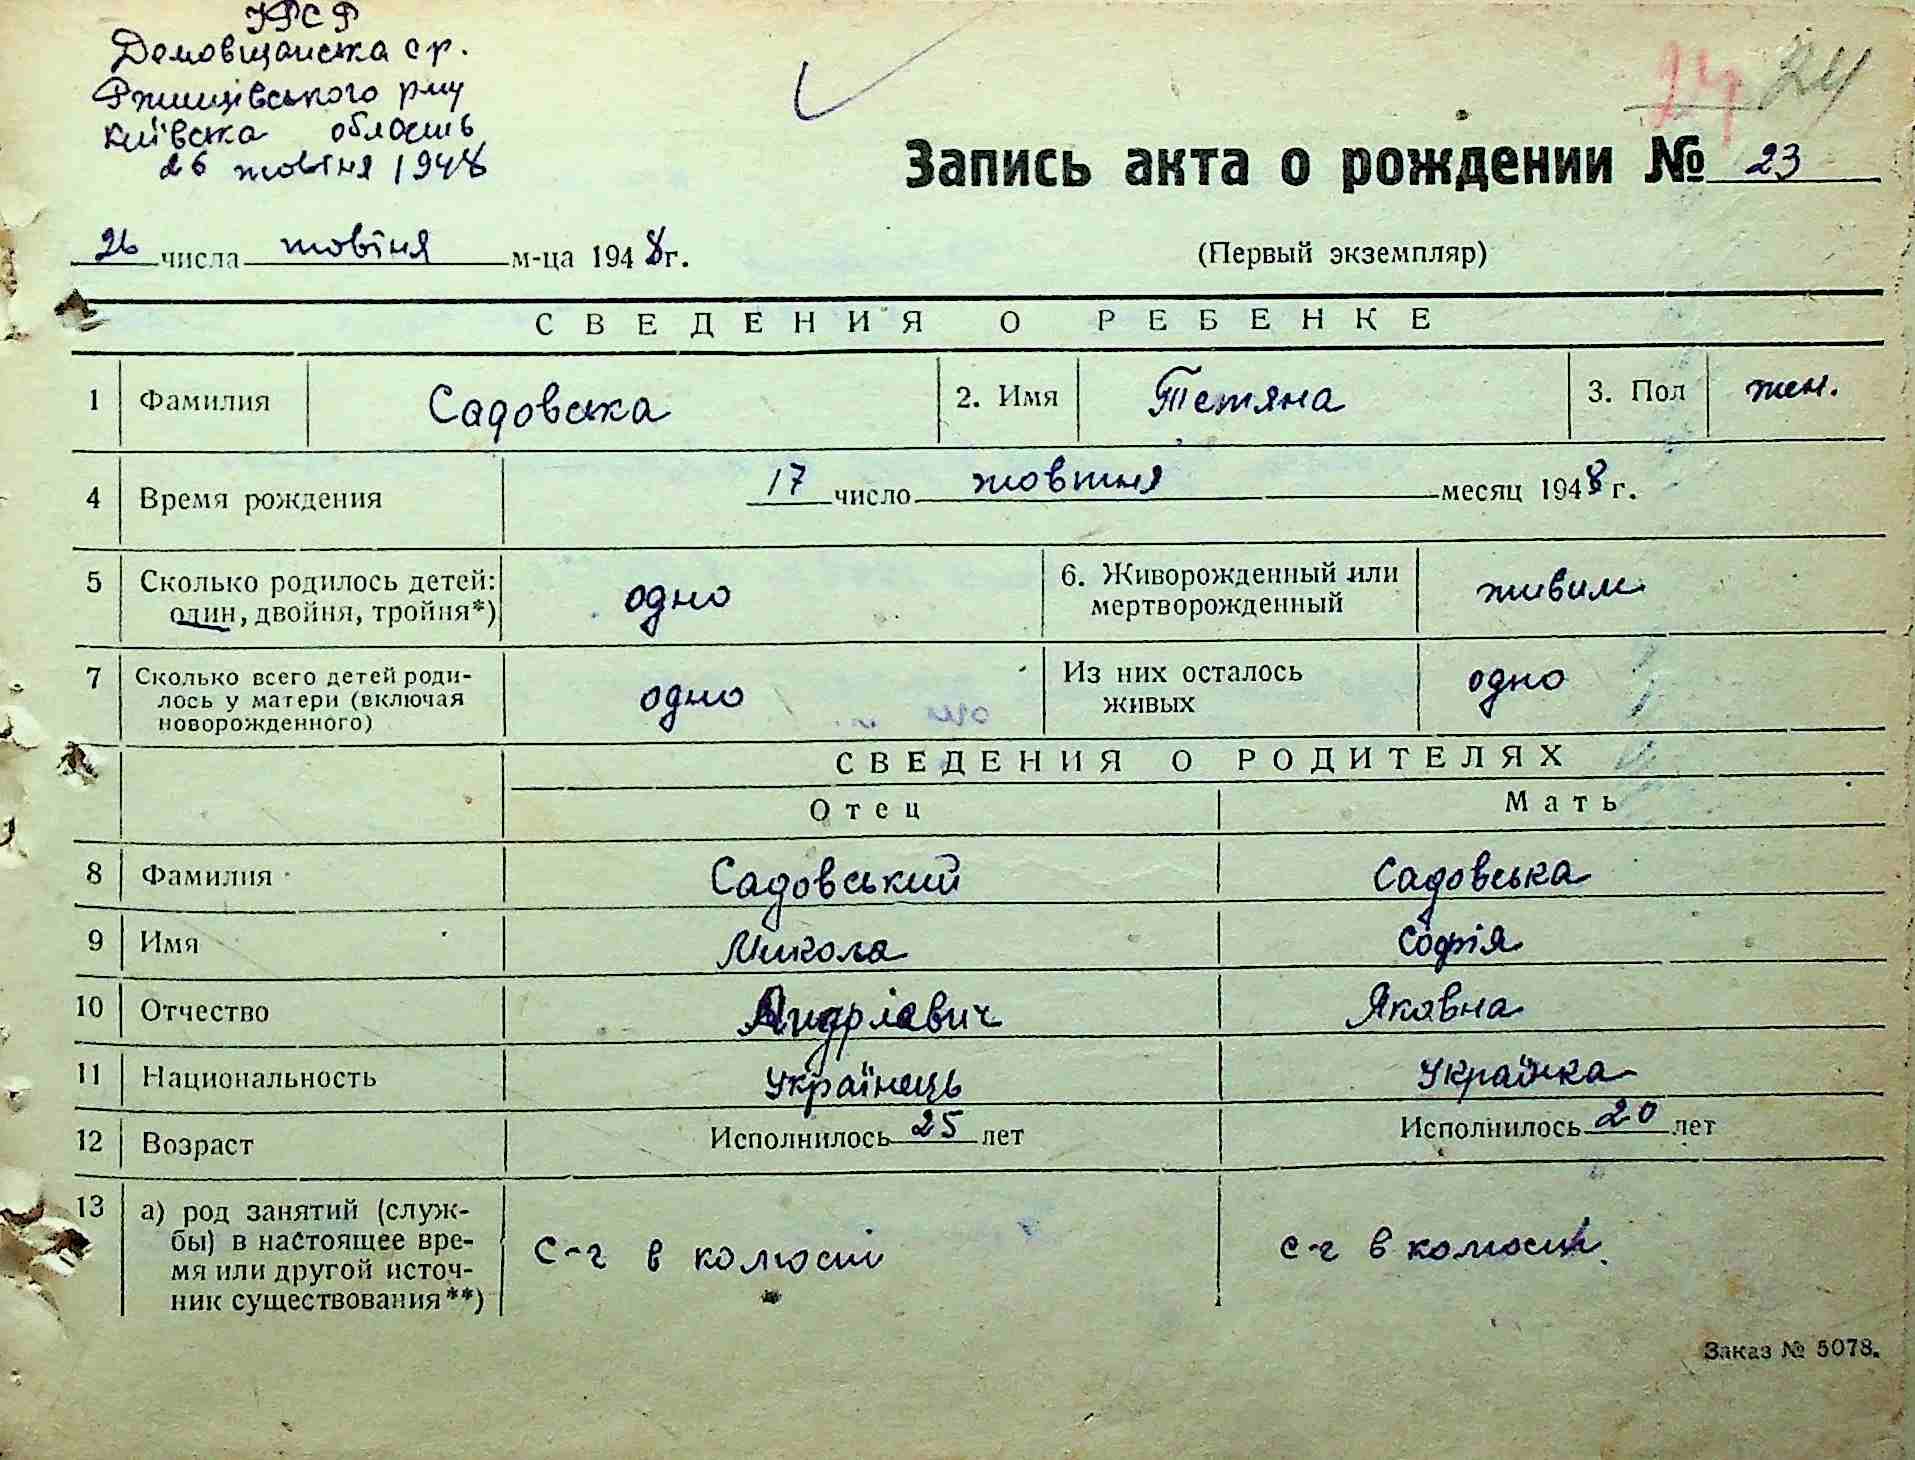 УРСР
Демовщанська с р.
Ржищівського р-ну
Київська область
26 жовтня 1948
24 24
Запись акта о рождении № 23
26 числа жовтня м-ца 1948 г.
(Первый экземпляр)
СВЕДЕНИЯ О РЕБЕНКЕ
1 Фамилия Садовська 2. Имя Тетяна 3. Пол жен.
4 Время рождения 17 число жовтня месяц 1948 г.
5 Сколько родилось детей: один, двойня, тройня*) одно 6. Живорожденный или мертворожденный живим
7 Сколько всего детей роди-
лось у матери (включая
новорожденного) одно Из них осталось живых одно
СВЕДЕНИЯ О РОДИТЕЛЯХ
Отец Мать
8 Фамилия Садовський Садовська
9 Имя Микола Софія
10 Отчество Андріевич Яковна
11 Национальность Українець Українка
12 Возраст Исполнилось 25 лет Исполнилось 20 лет
13 а) род занятий (служ-
бы) в настоящее вре-
мя или другой источ-
ник существования**) с-г в колгоспі с-г в колгоспі.
Заказ № 5078.